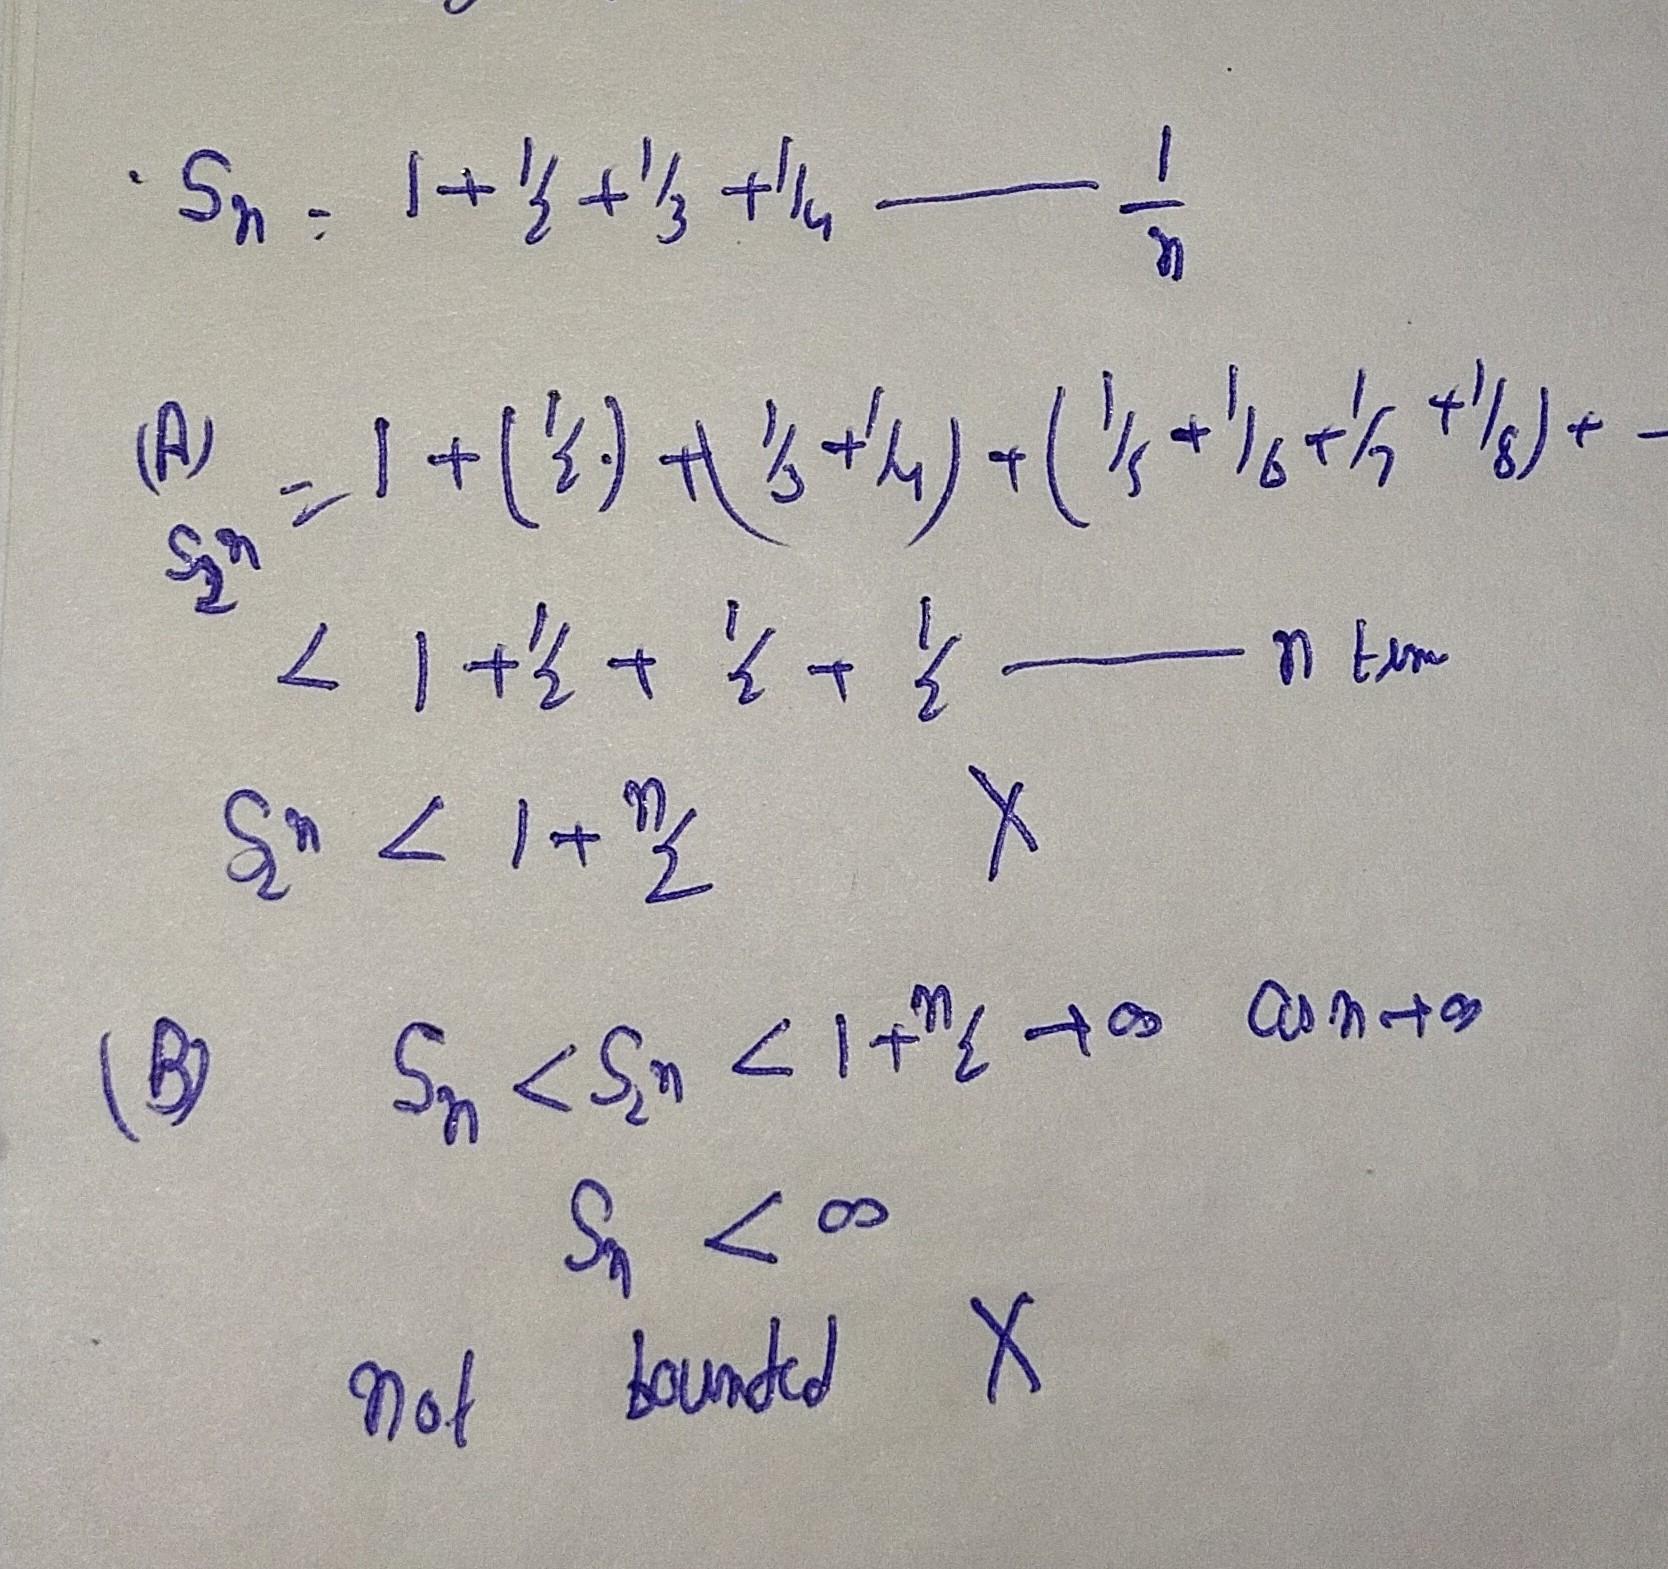 . Sn = 1 + 1/2 + 1/3 + 1/4 ——— 1/n
(A) S2^n = 1 + (1/2.) + (1/3 + 1/4) + (1/5 + 1/6 + 1/7 + 1/8) + -
< 1 + 1/2 + 1/2 + 1/2 ——— n
S2^n < 1 + n/2 X
(B) Sn < S2n < 1 + n/2 → ∞ as n → ∞
Sn < ∞
not bounded X